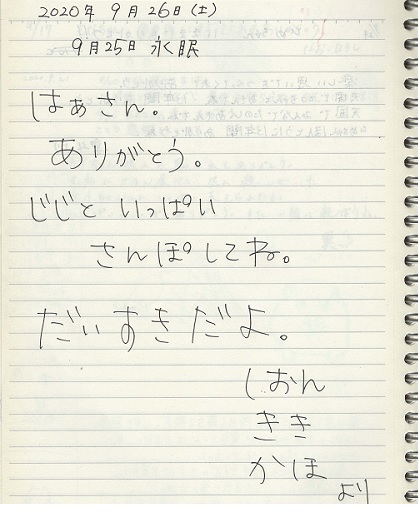 2020年 9月 26日(土)
9月25日 永眠
はぁさん。
ありがとう。
じじと いっぱい
さんぽしてね。
だいすきだよ。
しおん
きき
かほ
より